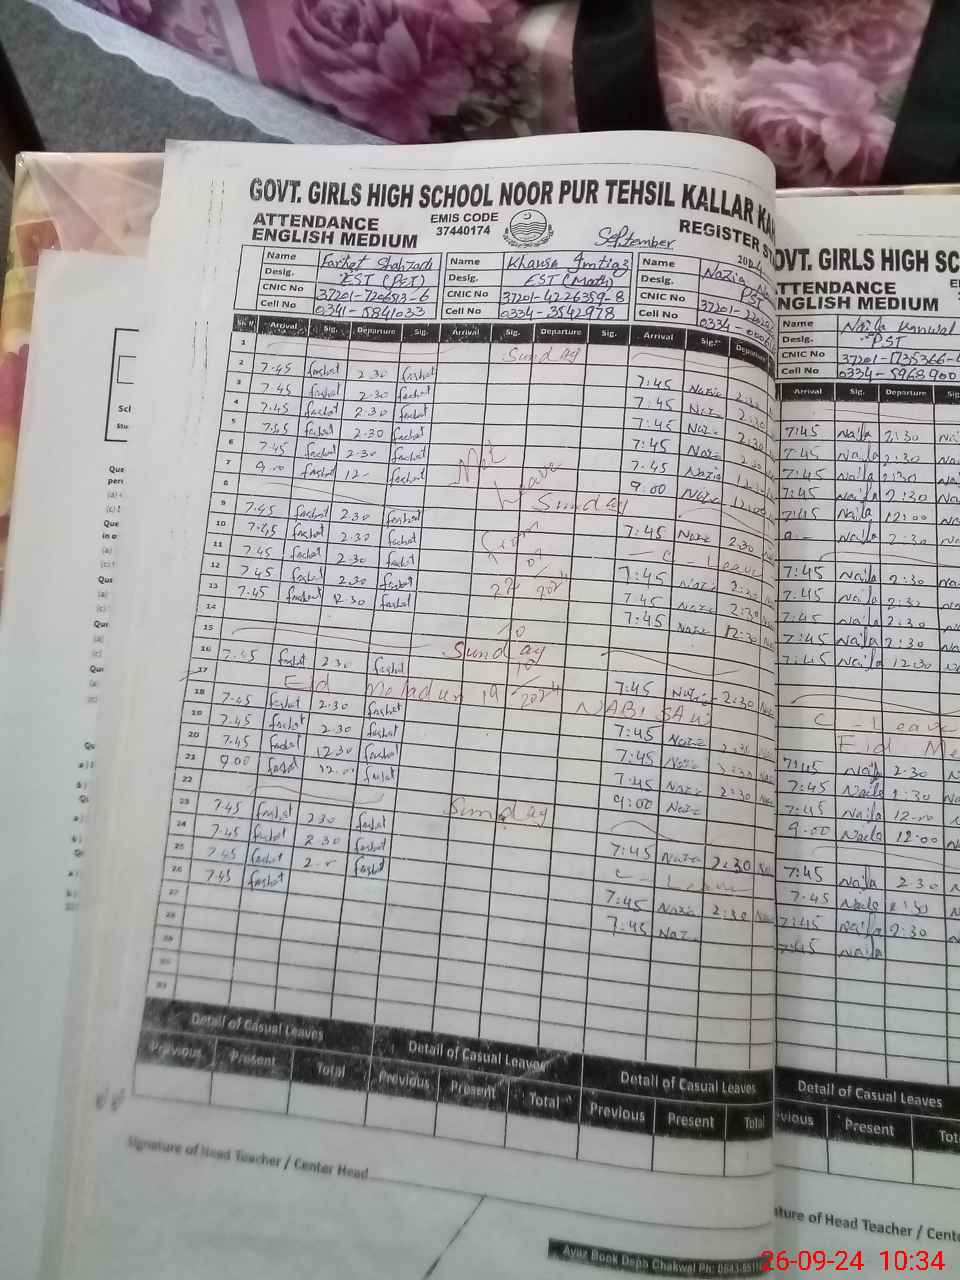 GOVT. GIRLS HIGH SCHOOL NOOR PUR TEHSIL KALLAR KA
ATTENDANCE EMIS CODE REGISTER
ENGLISH MEDIUM 37440174 September
Name Farhat Shahzadi Name Khausa Imtiaz Name Nazia
Desig. EST (PET) Desig. EST (Math) Desig. PST
CNIC No CNIC No 37201-4226359-8 CNIC No
Cell No 0341-5841033 Cell No 0334-3542978 Cell No
Sr.# Arrival Sig. Departure Sig. Arrival Sig. Departure Sig. Arrival Sig. Departure
1 Sunday
2 7.45 farhat 2.30 farhat 7:45 Nazia
3 7.45 farhat 2.30 farhat 7:45 Nazia 2:30
4 7.45 farhat 2.30 farhat 7:45 Nazia 2:30
5 7.45 farhat 2.30 farhat 7:45 Nazia 2:30
6 7.45 farhat 2.30 farhat 7.45 Nazia
7 9.00 farhat 12 farhat Leave 9.00 Nazia 12:00
8 Sunday
9 7.45 farhat 2.30 farhat 7:45 Nazia 2:30
10 7.45 farhat 2.30 farhat C - Leave
11 7.45 farhat 2.30 farhat 7:45 Nazia 2:30
12 7.45 farhat 2.30 farhat 7:45 Nazia 2:30
13 7.45 farhat 12.30 farhat 7:45 Nazia 12:30
14
15 Sunday
16 7.45 farhat 2.30 farhat 7:45 Nazia 2:30
17 Eid Meladun NABI SAW
18 7.45 farhat 2.30 farhat 7:45 Nazia 2:30
19 7.45 farhat 2.30 farhat 7:45 Nazia 2:30
20 7.45 farhat 12.30 farhat 7:45 Nazia 2:30
21 9.00 farhat 12.00 farhat 9:00 Nazia
22 Sunday
23 7.45 farhat 2.30 farhat 7:45 Nazia 2:30
24 7.45 farhat 2.30 farhat C - Leave
25 7.45 farhat farhat 7:45 Nazia 2:30
26 7.45 farhat 7:45 Naz
27
28
29
30
31
Detail of Casual Leaves Detail of Casual Leaves Detail of Casual Leaves
Previous Present Total Previous Present Total Previous Present Total
Signature of Head Teacher / Center Head
Ayaz Book Depo Chakwal Ph:
OVT. GIRLS HIGH SC
TTENDANCE
NGLISH MEDIUM
Name Naila Kanwal
Desig. PST
CNIC No 37201-1735366-4
Cell No 0334-5968900
Arrival Sig. Departure Sig.
7:45 Naila 2:30
7:45 Naila 2:30
7:45 Naila 2:30
7:45 Naila 2:30
7:45 Naila 12:00
9 Naila 2:30
7:45 Naila 2:30
7:45 Naila 2:30
7:45 Naila 2:30
7:45 Naila 2:30
7:45 Naila 12:30
C - Leave
Eid Me
7:45 Naila 2.30
7:45 Naila 2:30
7:45 Naila 12.00
9.00 Naila 12:00
7:45 Naila 2.30
7.45 Naila 2:30
7:45 Naila 2:30
7:45 Naila
Detail of Casual Leaves
vious Present Tot
ature of Head Teacher / Cente
26-09-24 10:34